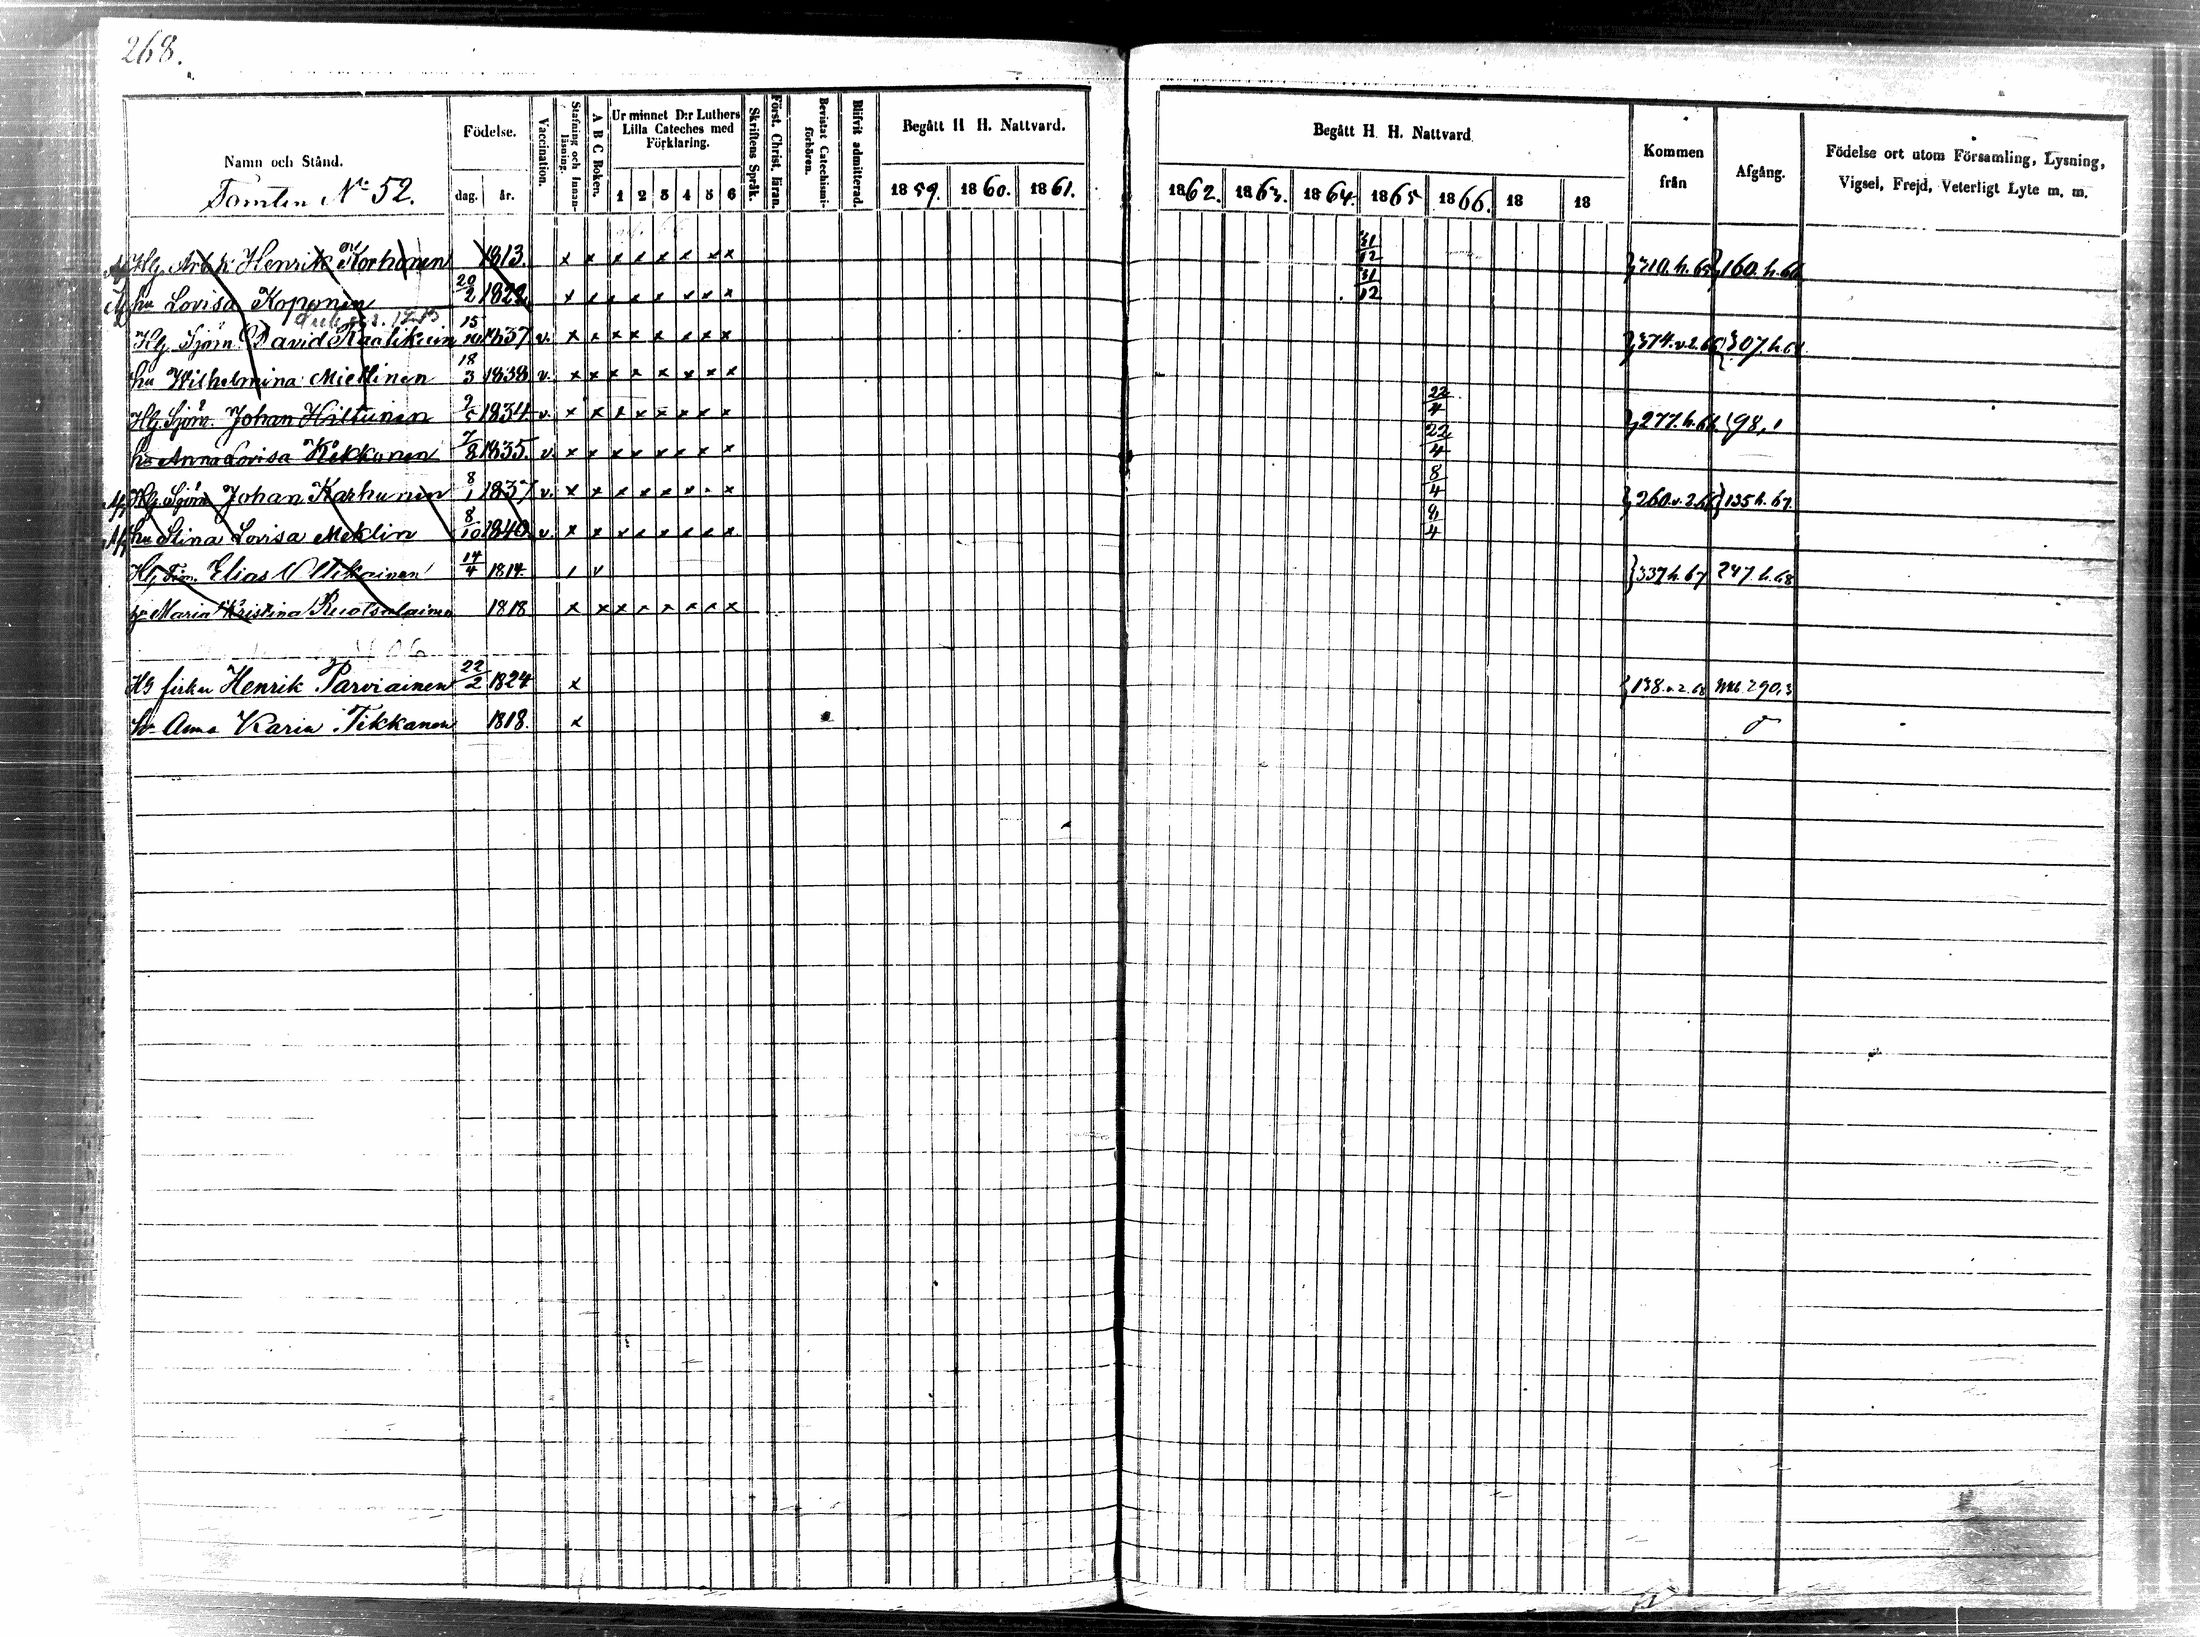 268.
Namn och Stånd.
Tomten No 52.
Födelse.
dag.
år.
Vaccination.
Stafning och Innanläsning.
A B C Boken.
Ur minnet D:r Luthers Lilla Cateches med Förklaring.
1 2 3 4 5 6
Skriftens Språk.
Först. Christ. läran.
Bevistat Catechismiförhören.
Blifvit admitterad.
Begått H H. Nattvard.
1859. 1860. 1861.
Begått H. H. Nattvard
1862. 1863. 1864. 1865 1866. 18 18
Kommen från
Afgång.
Födelse ort utom Församling, Lysning,
Vigsel, Frejd, Veterligt Lyte m. m.
Hg. Arb.k. Henrik Korhonen 1813. x x x x x x x x 31/12 310. h. 65 160. h. 66
hu Lovisa Koponen 20/2 1822 31/12
Hg. Sjöm. David 15 1837 v. 374. v. 2. 66 307. h. 68
hu Wilhelmina Miettinen 18/3 1838 v. x x x x x x x x
Hg. Sjöm. Johan Hiltunen 9/5 1834 v. x x x x x x x x 22/4 277. h. 66 98,1
hu Anna Lovisa Kekkonen 7/8 1835. v. x x x x x x x x 22/4
Hg. Sjöm Johan Karhunen 8/1 1837 v. 8/4 260. v. 2. 66 135 h. 67.
hu Stina Lovisa Meklin 8/10 1840 v. 8/4
Hg. Tim. Elias 14/4 1814 337 h. 67 247. h. 68
hu Maria Kristina Ruotsalainen 1818 x x x x x x x x
Hg Henrik Parviainen 22/2 1824 x 138. v. 2. 68 290,3
hu Anna Karin Tikkanen 1818. x